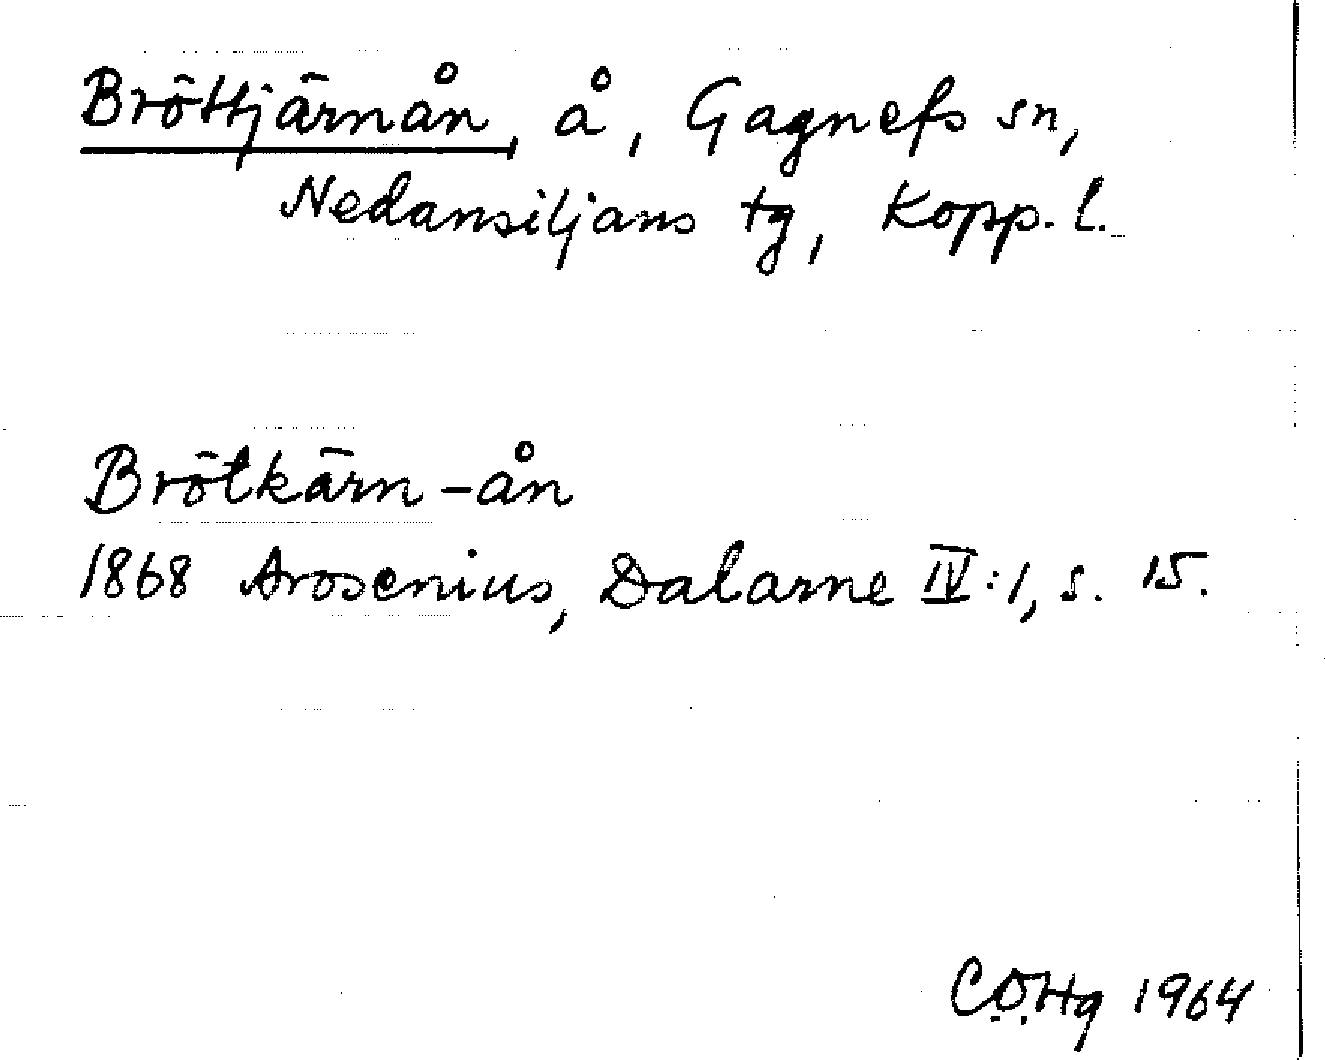 Bröttjärnån, å, Gagnefs sn,
Nedansiljans tg, Kopp. l.
Brötkärn-ån
1868 Arosenius, Dalarne IV:1, s. 15.
C.Ö.Hg 1964